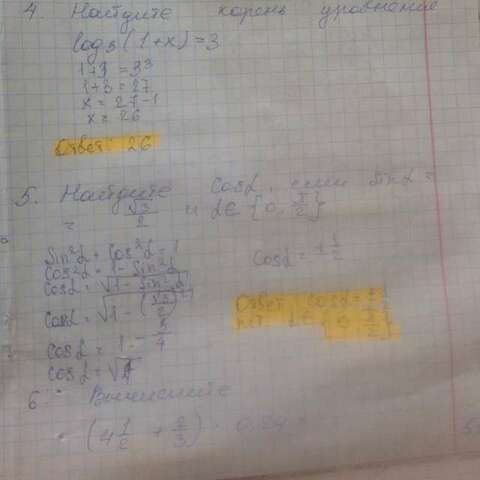 4. Найдите корень уравнения
log₃(1+x)=3
1+3 = 3³
1+3 = 27
x = 27-1
x = 26
Ответ: 26
5. Найдите cosα, если sinα =
= √3/2 и α∈{0, π/2}
Sin²α + Cos²α = 1
Cos²α = 1 - Sin²α
Cosα = √(1 - Sin²α)
Cosα = √(1 - (√3/2)²)
Cosα = 1 - 3/4
Cosα = √
Cosα = ±1/2
Ответ: Cosα = ±1/2
α∈{0, π/2}
6. Вычислите
(4 1/2 + 2/3) ·